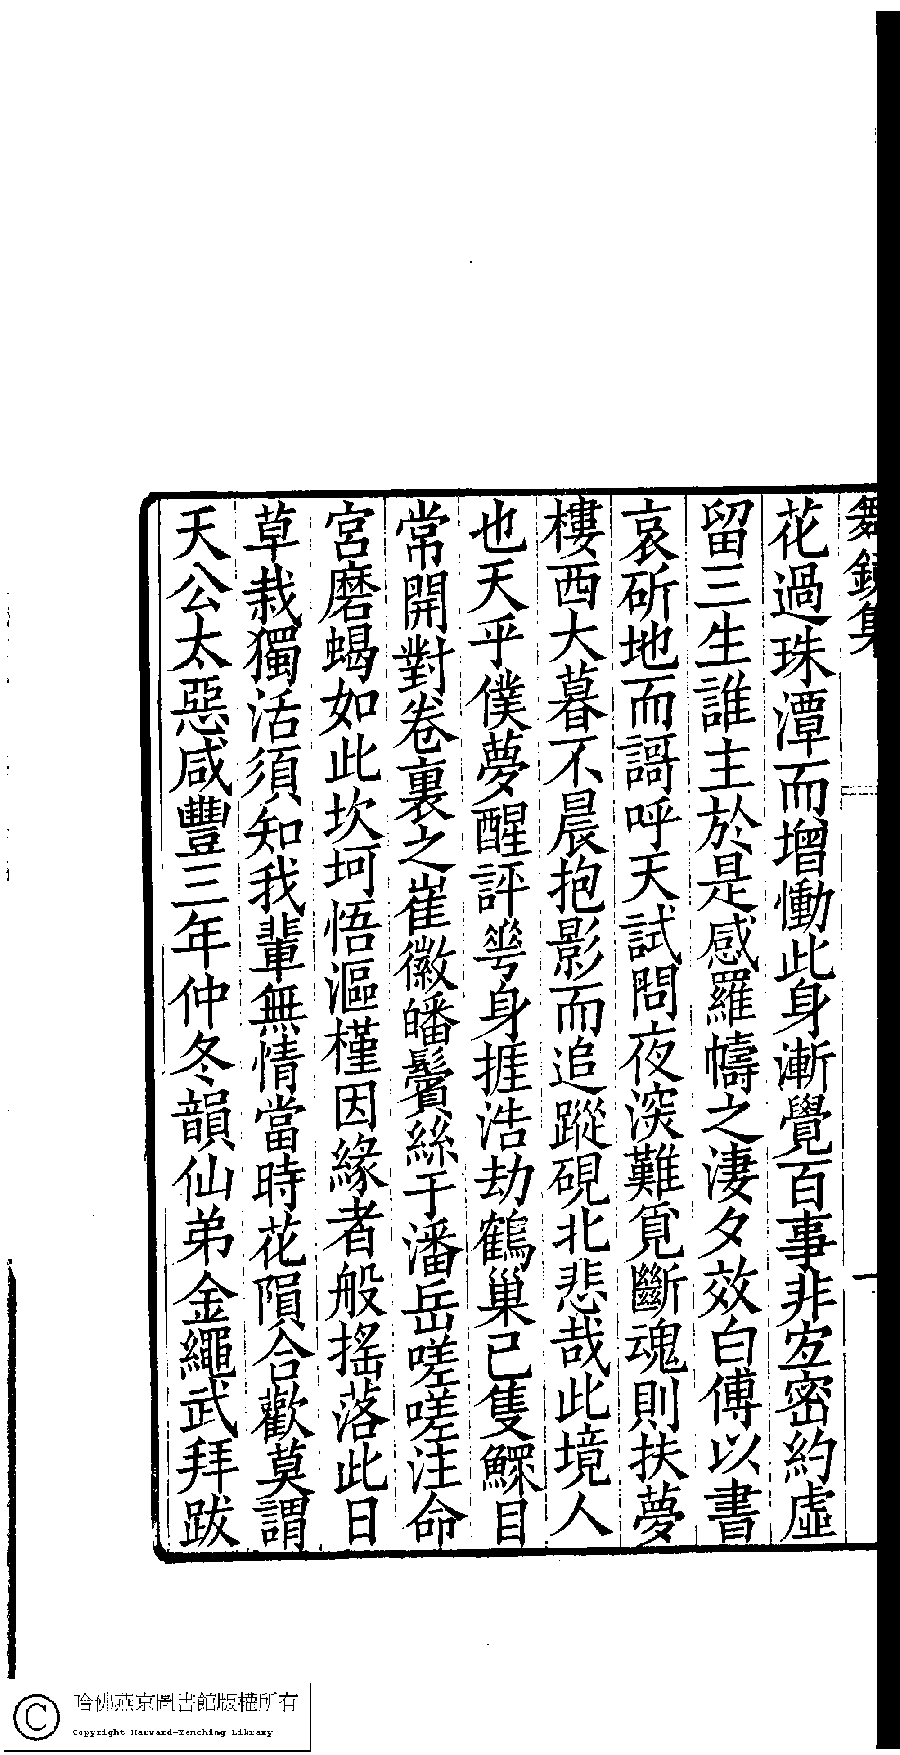 舞鏡集
一
花過珠潭而增慟此身漸覺百事非宐密約虛
留三生誰主於是感羅幬之淒夕效白傅以書
哀斫地而謌呼天試問夜深難覓斷魂則扶夢
樓西大暮不晨抱影而追蹤硯北悲哉此境人
也天乎僕夢醒評蕚身捱浩劫鶴巢已隻鰥目
常開對卷裏之崔徽皤鬢絲于潘岳嗟嗟注命
宮磨蝎如此坎坷悟漚槿因緣者般搖落此日
草栽獨活須知我輩無情當時花隕合歡莫謂
天公太惡咸豐三年仲冬韻仙弟金繩武拜跋
哈佛燕京圖書館版權所有
Copyright Harvard-Yenching Library